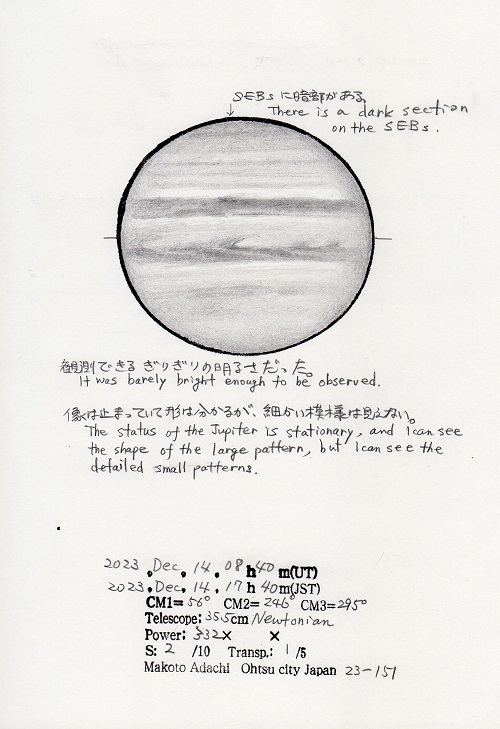 SEBs に暗部がある
↓
There is a dark section
on the SEBs.
観測できるぎりぎりの明るさだった。
It was barely bright enough to be observed.
像は止まっていて形は分かるが、細かい模様は見えない。
The status of the Jupiter is stationary, and I can see
the shape of the large pattern, but I can see the
detailed small patterns.
2023 . Dec. 14 . 08 h 40 m(UT)
2023 . Dec. 14 . 17 h 40 m(JST)
CM1= 56° CM2= 246° CM3= 295°
Telescope: 35.5cm Newtonian
Power: 332× ×
S: 2 /10 Transp.: 1 /5
Makoto Adachi Ohtsu city Japan 23-151